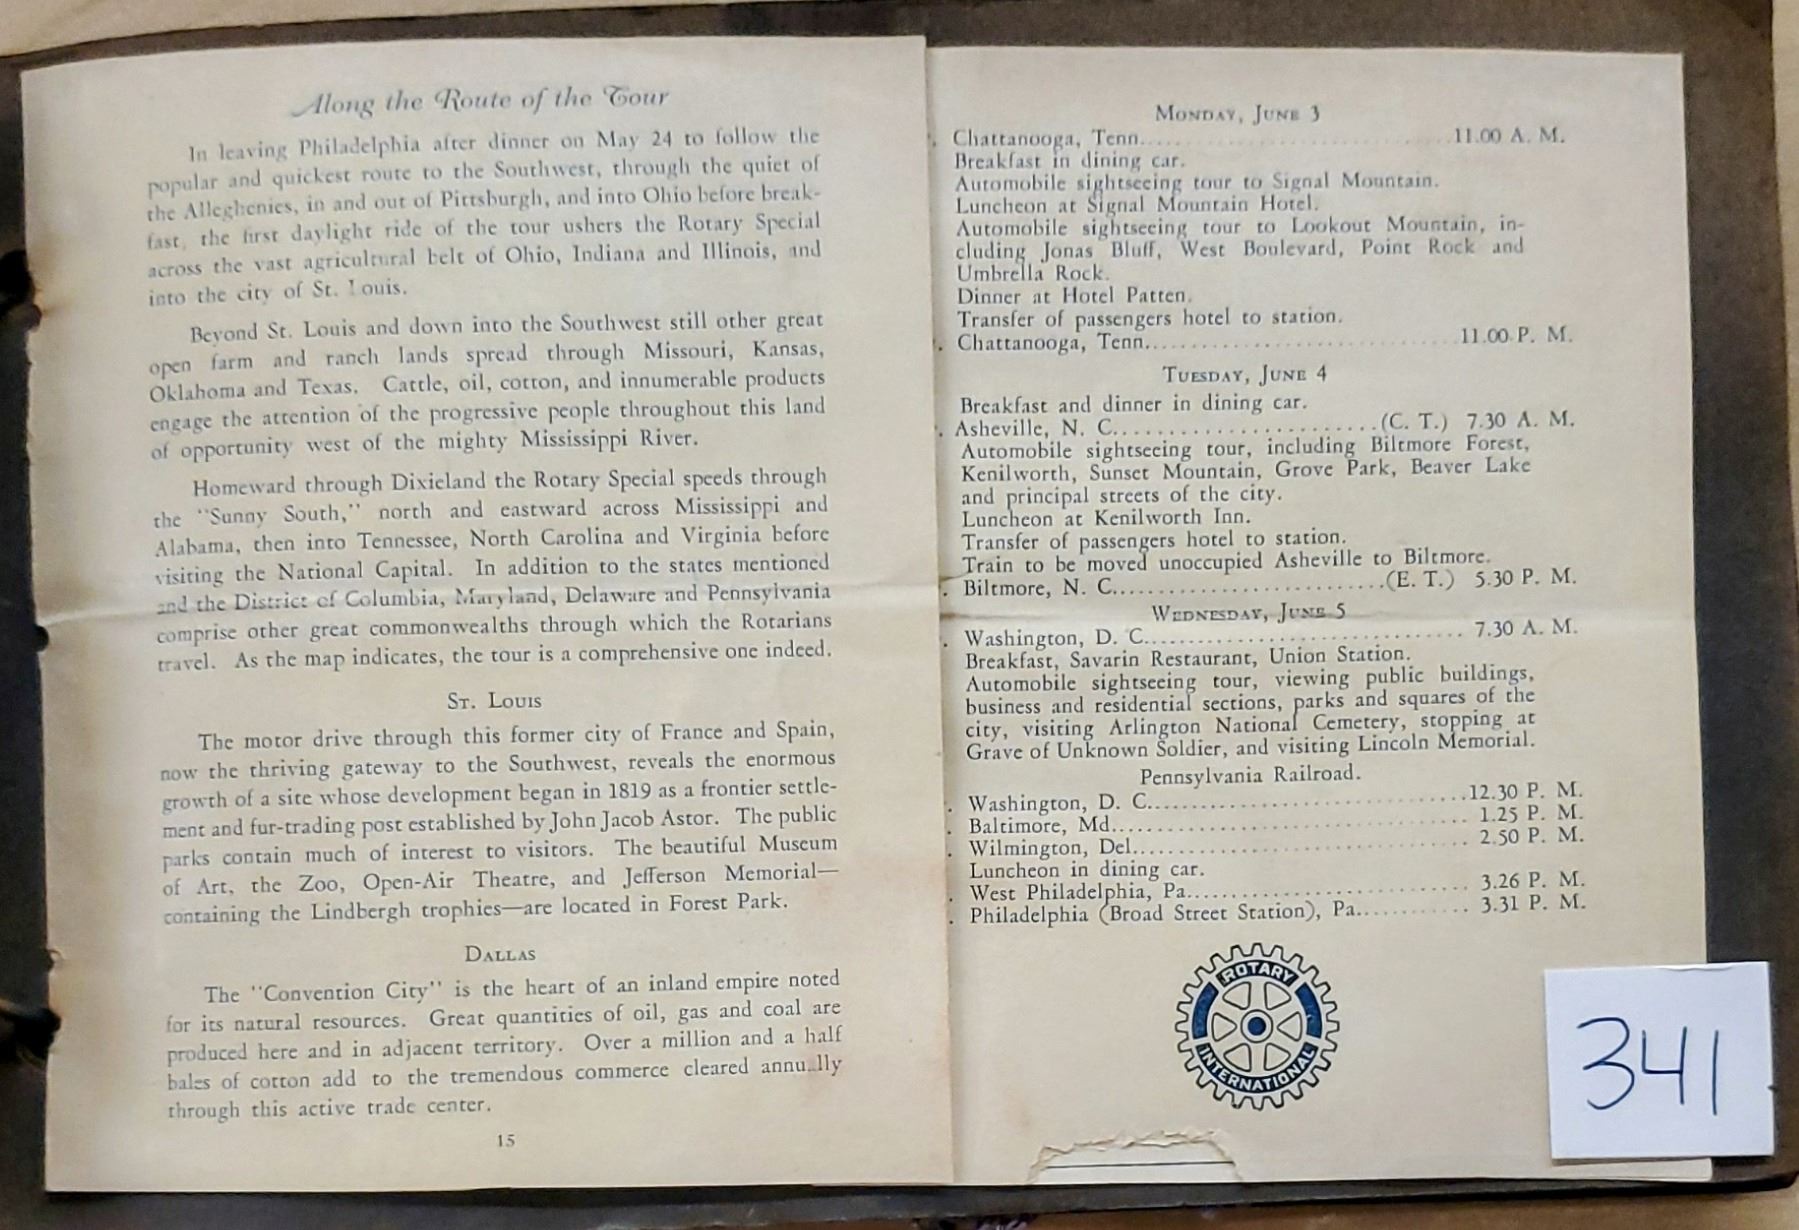 Along the Route of the Tour
In leaving Philadelphia after dinner on May 24 to follow the
popular and quickest route to the Southwest, through the quiet of
the Alleghenies, in and out of Pittsburgh, and into Ohio before break-
fast, the first daylight ride of the tour ushers the Rotary Special
across the vast agricultural belt of Ohio, Indiana and Illinois, and
into the city of St. Louis.
Beyond St. Louis and down into the Southwest still other great
open farm and ranch lands spread through Missouri, Kansas,
Oklahoma and Texas. Cattle, oil, cotton, and innumerable products
engage the attention of the progressive people throughout this land
of opportunity west of the mighty Mississippi River.
Homeward through Dixieland the Rotary Special speeds through
the "Sunny South," north and eastward across Mississippi and
Alabama, then into Tennessee, North Carolina and Virginia before
visiting the National Capital. In addition to the states mentioned
and the District of Columbia, Maryland, Delaware and Pennsylvania
comprise other great commonwealths through which the Rotarians
travel. As the map indicates, the tour is a comprehensive one indeed.
St. Louis
The motor drive through this former city of France and Spain,
now the thriving gateway to the Southwest, reveals the enormous
growth of a site whose development began in 1819 as a frontier settle-
ment and fur-trading post established by John Jacob Astor. The public
parks contain much of interest to visitors. The beautiful Museum
of Art, the Zoo, Open-Air Theatre, and Jefferson Memorial—
containing the Lindbergh trophies—are located in Forest Park.
Dallas
The "Convention City" is the heart of an inland empire noted
for its natural resources. Great quantities of oil, gas and coal are
produced here and in adjacent territory. Over a million and a half
bales of cotton add to the tremendous commerce cleared annually
through this active trade center.
15
Monday, June 3
Chattanooga, Tenn. 11.00 A. M.
Breakfast in dining car.
Automobile sightseeing tour to Signal Mountain.
Luncheon at Signal Mountain Hotel.
Automobile sightseeing tour to Lookout Mountain, in-
cluding Jonas Bluff, West Boulevard, Point Rock and
Umbrella Rock.
Dinner at Hotel Patten.
Transfer of passengers hotel to station.
Chattanooga, Tenn. 11.00 P. M.
Tuesday, June 4
Breakfast and dinner in dining car.
Asheville, N. C. (C. T.) 7.30 A. M.
Automobile sightseeing tour, including Biltmore Forest,
Kenilworth, Sunset Mountain, Grove Park, Beaver Lake
and principal streets of the city.
Luncheon at Kenilworth Inn.
Transfer of passengers hotel to station.
Train to be moved unoccupied Asheville to Biltmore.
Biltmore, N. C. (E. T.) 5.30 P. M.
Wednesday, June 5
Washington, D. C. 7.30 A. M.
Breakfast, Savarin Restaurant, Union Station.
Automobile sightseeing tour, viewing public buildings,
business and residential sections, parks and squares of the
city, visiting Arlington National Cemetery, stopping at
Grave of Unknown Soldier, and visiting Lincoln Memorial.
Pennsylvania Railroad.
Washington, D. C. 12.30 P. M.
Baltimore, Md. 1.25 P. M.
Wilmington, Del. 2.50 P. M.
Luncheon in dining car.
West Philadelphia, Pa. 3.26 P. M.
Philadelphia (Broad Street Station), Pa. 3.31 P. M.
ROTARY
INTERNATIONAL
341